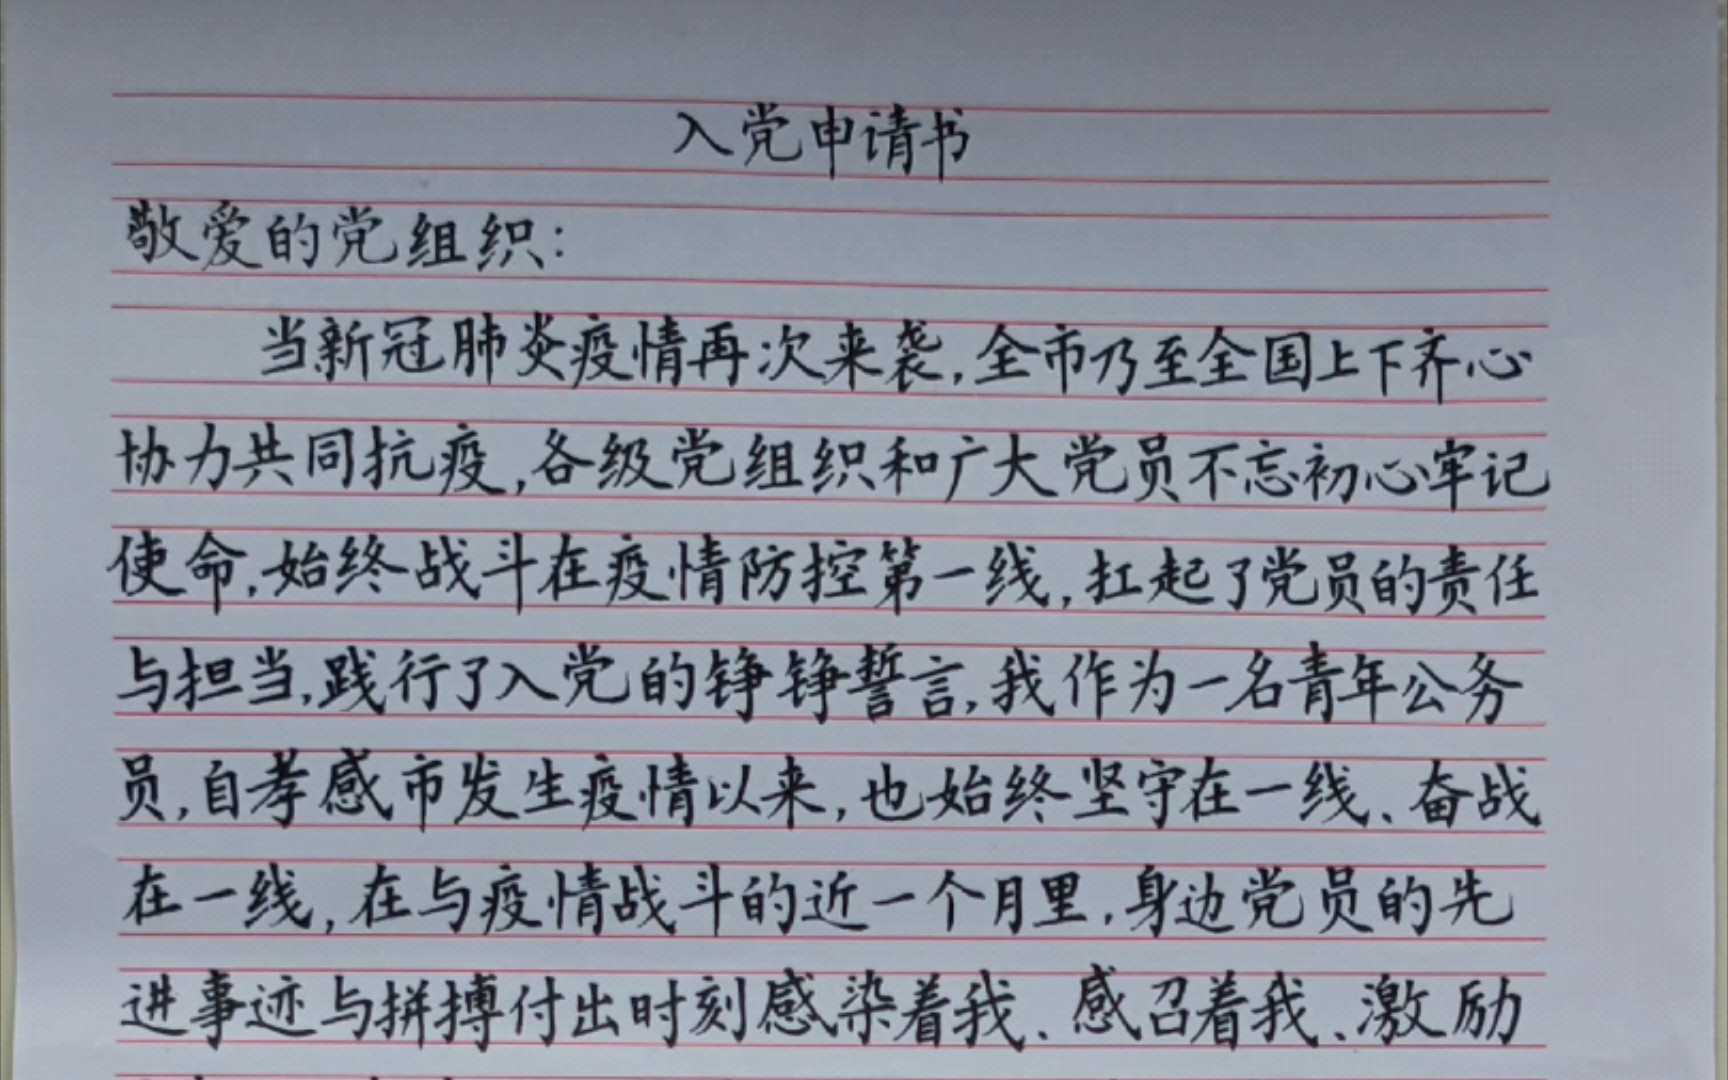 入党申请书
敬爱的党组织：
当新冠肺炎疫情再次来袭，全市乃至全国上下齐心
协力共同抗疫，各级党组织和广大党员不忘初心牢记
使命，始终战斗在疫情防控第一线，扛起了党员的责任
与担当，践行了入党的铮铮誓言，我作为一名青年公务
员，自孝感市发生疫情以来，也始终坚守在一线、奋战
在一线，在与疫情战斗的近一个月里，身边党员的先
进事迹与拼搏付出时刻感染着我、感召着我、激励